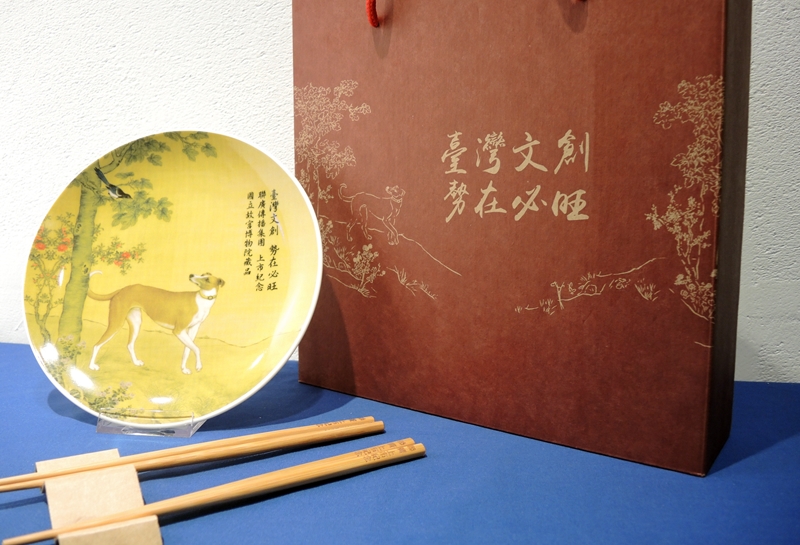 臺灣文創 勢在必旺
聯廣傳播集團 上市紀念
國立故宮博物院藏品
臺灣文創
勢在必旺